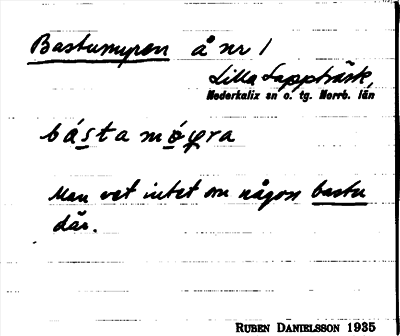 Bastumyren å nr 1
Lilla Lappträsk,
Nederkalix sn o. tg. Norrb. län
Man vet intet om någon bastu
där.
RUBEN DANIELSSON 1935